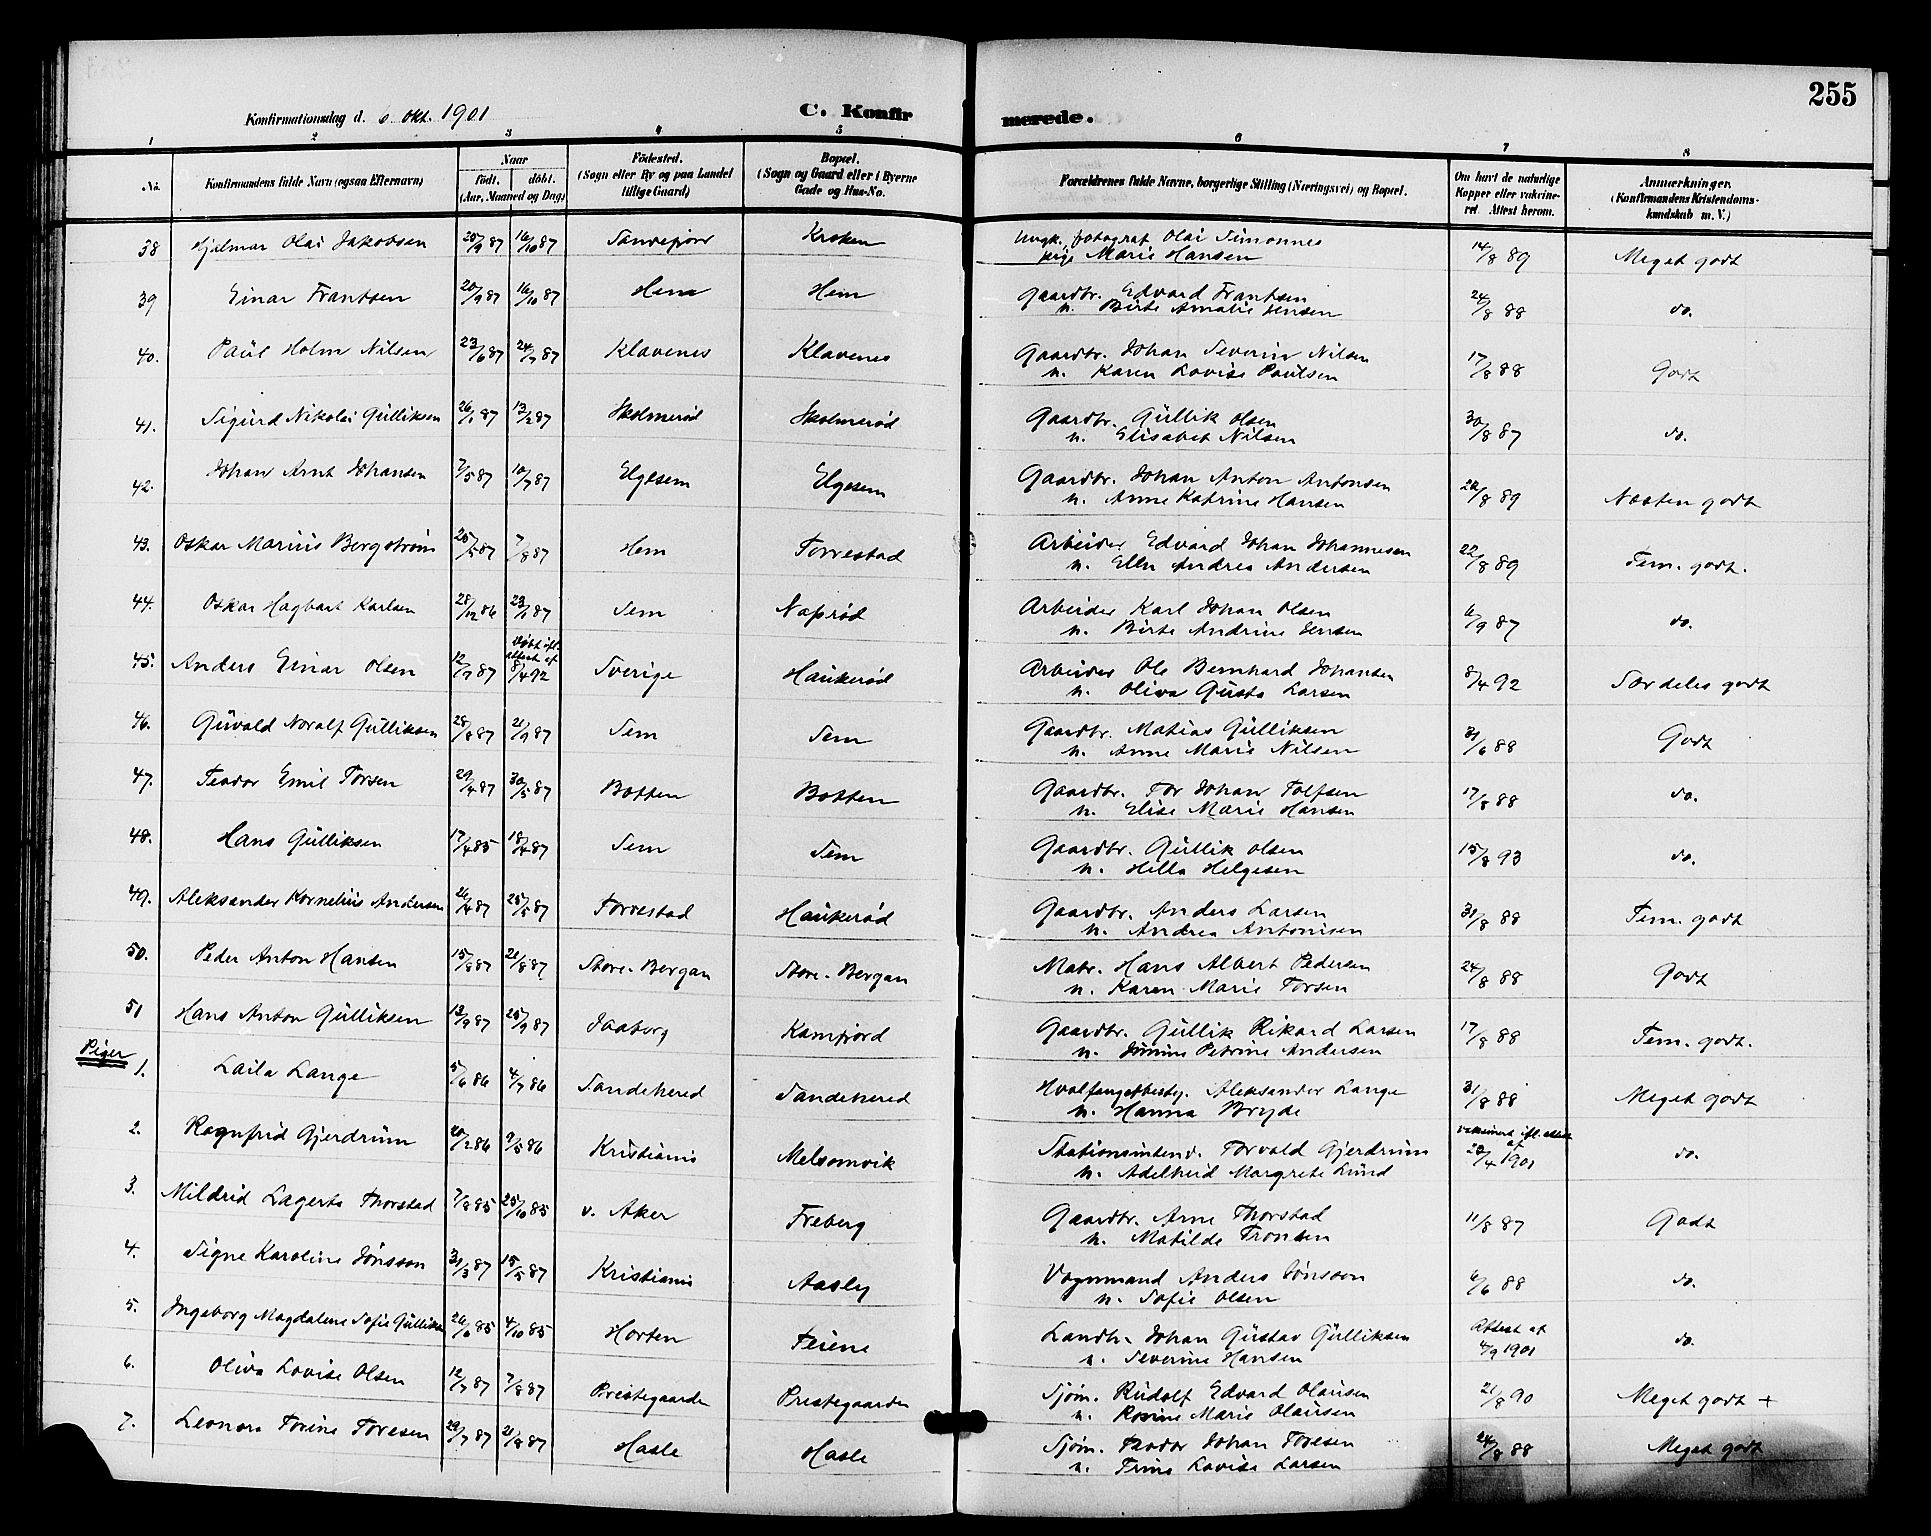 255
Konfirmationsdag d. 6. Okt. 1901 C. Konfirmerede.
1 2 3 4 5 6 7 8
No. Konfirmandens fulde Navn (ogsaa Efternavn) Naar födt. döbt. (Aar, Maaned og Dag) Födested. (Sogn eller By og paa Landet tillige Gaard) Bopæl. (Sogn og Gaard eller i Byerne Gade og Hus-No. Forældrenes fulde Navne, borgerlige Stilling (Næringsvei) og Bopæl. Om havt de naturlige Kopper eller vakcineret. Attest herom. Anmærkninger. (Konfirmandens Kristendomskundskab m. V.)
38 Hjalmar Olai Jakobsen 20/9 87 16/10 87 Sandefjord Kroken Ungk. fotograf Olai Simonnes
pige Marie Hansen 14/8 89 Meget godt
39 Einar Frantsen 20/9 87 16/10 87 Hem Hem Gaardbr. Edvard Frantsen
n. Birte Amalie Jensen 24/8 88 do.
40. Paul Holm Nilsen 23/6 87 24/7 87 Klavenes Klavenes Gaardbr. Johan Severin Nilsen
n. Karen Lovise Paulsen 17/8 88 Godt
41. Sigurd Nikolai Gulliksen 26/1 87 13/2 87 Skolmerød Skolmerød Gaardbr. Gullik Olsen
n. Elisabet Nilsen 30/8 87 do.
42. Johan Arnt Johansen 7/5 87 10/7 87 Elgesem Elgesem Gaardbr. Johan Anton Antonsen
n. Anne Katrine Hansen 22/8 89 Næsten godt
43. Oskar Marius Bergstrøm 25/5 87 7/8 87 Hem Torrestad Arbeider Edvard Johan Johannesen
n. Ellen Andrea Andersen 22/8 89 Tem. godt.
44. Oskar Hagbart Karlsen 28/12 86 23/1 87 Sem Naprød Arbeider Karl Johan Olsen
n. Birte Andrine Jensen 6/9 87 do.
45. Anders Einar Olsen 12/7 87 døbt ifl. attest af 8/4 92 Sverige Haukerød Arbeider Ole Bernhard Johansen
n. Oliva Gusta Larsen 8/4 92 Særdeles godt
46. Guvald Noralf Gulliksen 28/8 87 21/9 87 Sem Sem Gaardbr. Matias Gulliksen
n. Anne Marie Nilsen 31/6 88 Godt
47. Teodor Emil Torsen 29/4 87 30/5 87 Botten Botten Gaardbr. Tor Johan Tolfsen
n. Elise Marie Hansen 17/8 88 do.
48. Hans Gulliksen 17/4 85 18/4 87 Sem Sem Gaardbr. Gullik Olsen
n. Hella Helgesen 15/8 93 do.
49. Aleksander Kornelius Andersen 26/4 87 25/5 87 Torrestad Haukerød Gaardbr. Anders Larsen
n. Andrea Antonisen 31/8 88 Tem. godt
50. Peder Anton Hansen 15/8 87 21/8 87 Store-Bergan Store-Bergan Matr. Hans Albert Pedersen
n. Karen Marie Torsen 24/8 88 Godt
51 Hans Anton Gulliksen 13/9 87 25/9 87 Jaaberg Kamfjord Gaardbr. Gullik Rikard Larsen
n. Petrine Andersen 17/8 88 Tem. godt.
Piger
1. Laila Lange 5/6 86 4/7 86 Sandeherred Sandeherred Hvalfangstbesty. Aleksander Lange
n. Hanna Bryde 31/8 88 Meget godt
2. Ragnfrid Gjerdrum 20/2 86 9/5 86 Kristiania Melsomvik Stationsintend. Torvald Gjerdrum
n. Adelheid Margrete Lund vaksinert ifl. attest af 20/4 1901 do.
3. Mildrid Lagerta Thorstad 7/8 85 25/10 85 v. Aker Freberg Gaardbr. Arne Thorstad
n. Matilde Tronsen 11/8 87 Godt
4. Signe Karoline Jönsson 31/3 87 15/5 87 Kristiania Aasly Vognmand Anders Jönsson
n. Sofie Olsen 6/6 88 do.
5. Ingeborg Magdalene Sofie Gulliksen 26/6 85 4/10 85 Horten Feiene Landh. Johan Gustav Gulliksen
n. Severine Hansen Attest af 4/9 1901 do.
6. Oliva Lovise Olsen 12/7 87 7/8 87 Prestegaarden Prestegaarden Sjøm. Rudolf Edvard Olausen
n. Rosine Marie Olausen 21/8 90 Meget godt +
7. Leonora Torine Toresen 29/7 87 21/8 87 Hasle Hasle Sjøm. Teodor Johan Toresen
n. Trine Lovise Larsen 24/8 88 Meget godt